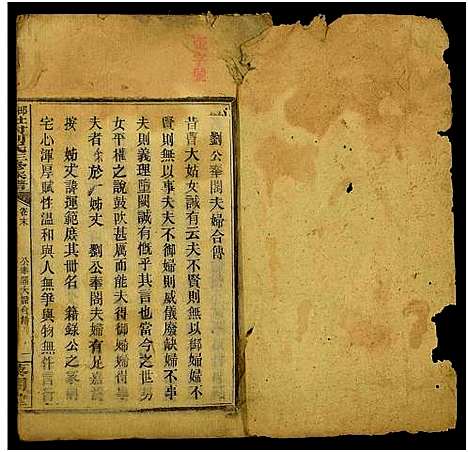 劉公奉閣夫婦合傳
昔曹大姑女誡有云夫不賢則無以御婦婦不
賢則無以事夫夫不御婦則威儀廢缺婦不事
夫則義理墮闕誠有慨乎其言也當今之世男
女平權之說鼓吹甚厲而能夫得御婦婦得事
夫者 於 姊丈 劉公奉閣夫婦有足嘉
按 姊丈諱運範庶其冊名 籍錄公之
宅心渾厚賦性溫和與人無爭與物無忤言
三修
卷末